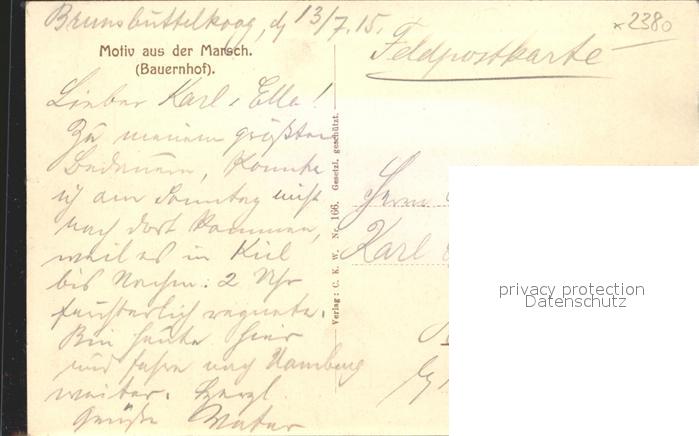 Brunsbüttelkoog, d 13/7.15.
x 2380
Motiv aus der Marsch.
(Bauernhof).
Feldpostkarte
Lieber Karl u. Ella!
Zu meinem größten
Bedauern, konnte
ich am Sonntag nicht
nach dort kommen,
weil es in Kiel
bis Nachm. 2 Uhr
fürchterlich regnete.
Bin heute hier
und fahre nach Hamburg
weiter. Herzl.
Grüße Vater
Verlag: C. K. W. Nr. 166. Gesetzl. geschützt.
Herrn
Karl
privacy protection
Datenschutz